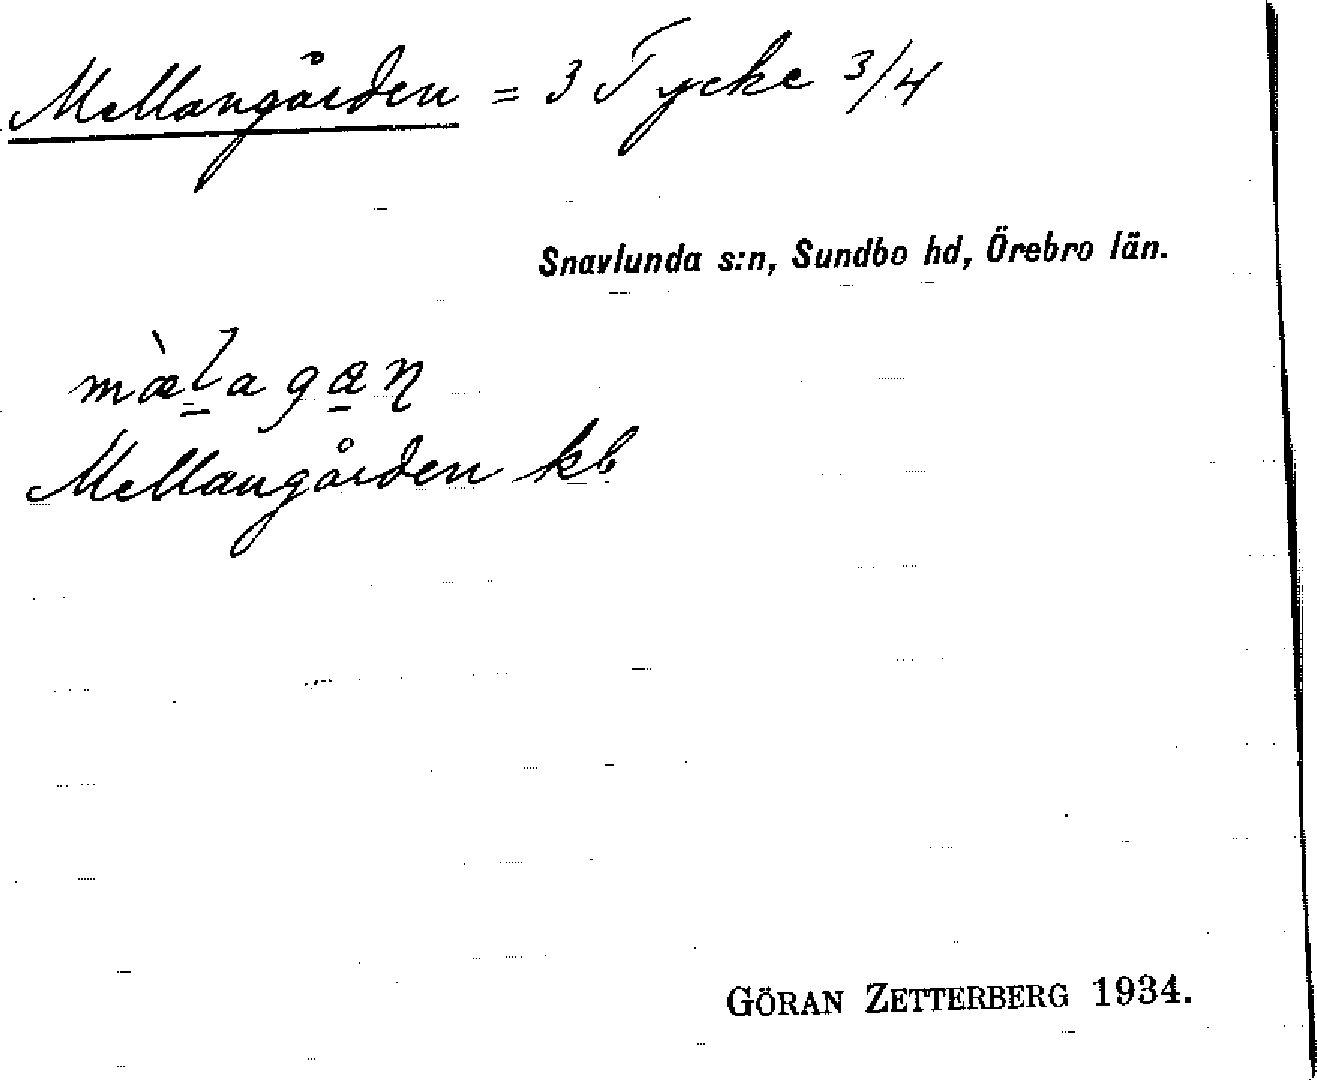 Mellangården = 3 Tycke 3/4
Snavlunda s:n, Sundbo hd, Örebro län.
mæ̀l̠agæ̠n
Mellangården kb
GÖRAN ZETTERBERG 1934.